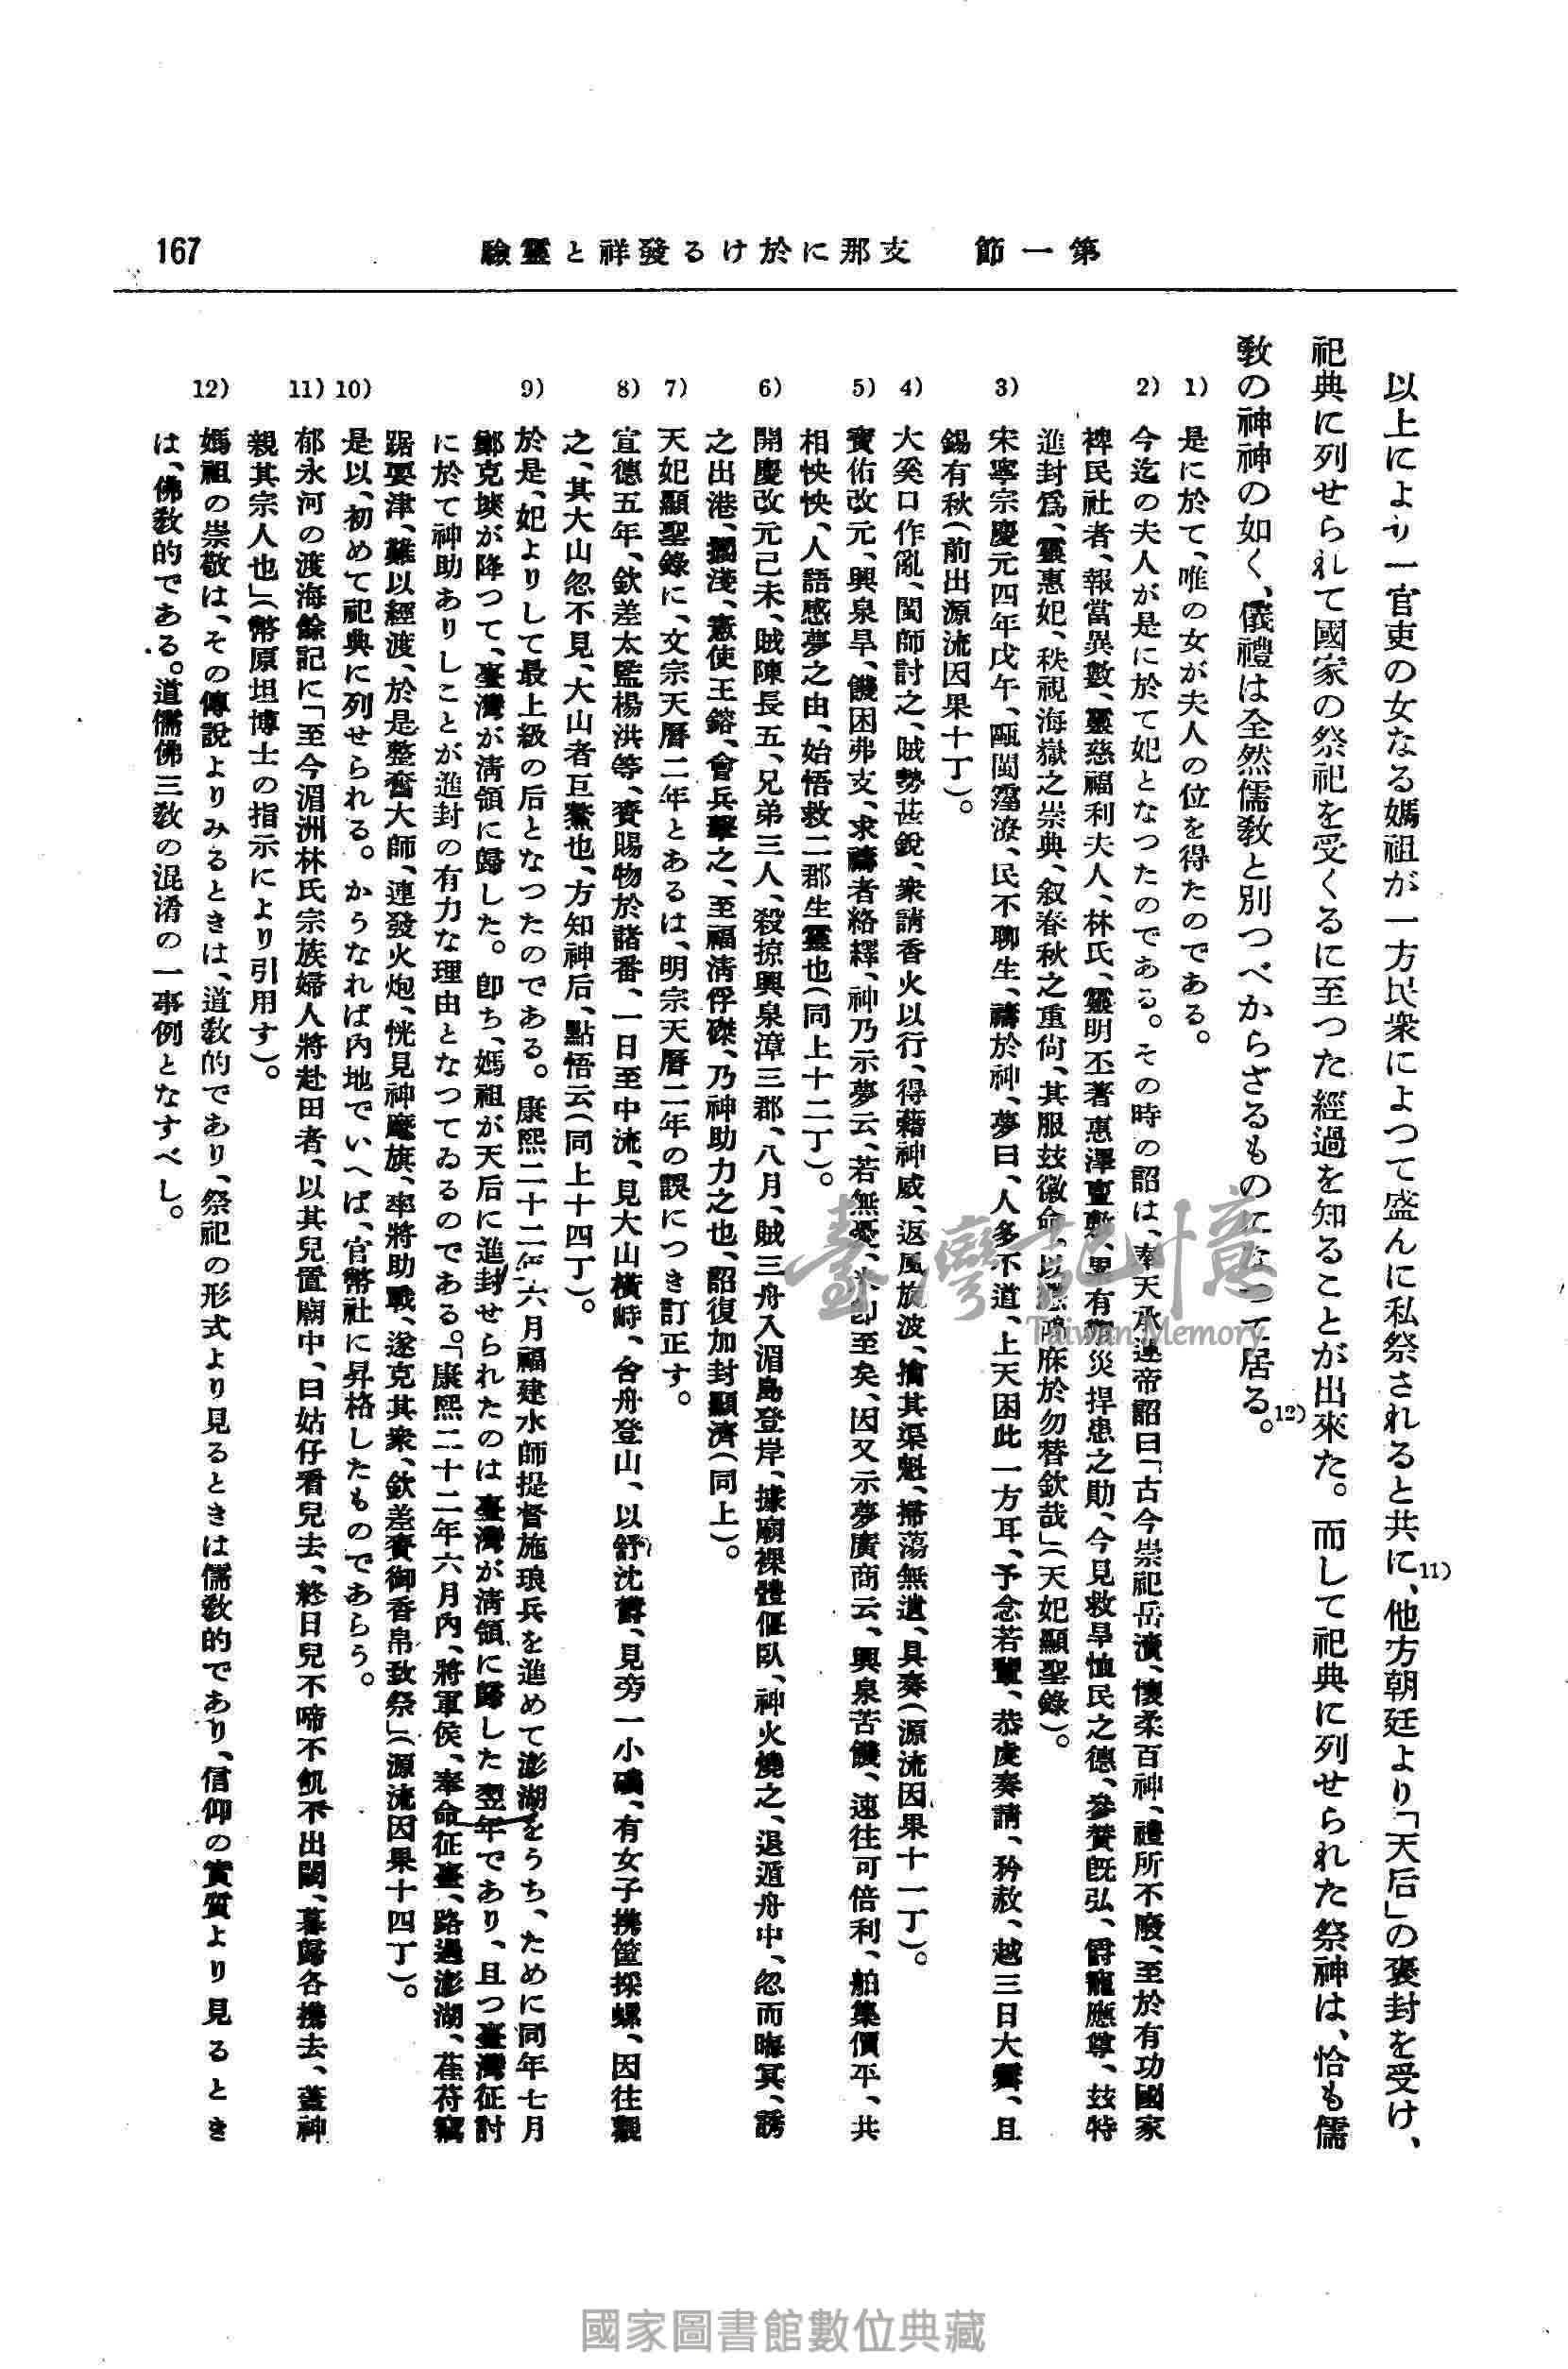 第一節　支那に於ける發祥と靈驗
167
以上により一官吏の女なる媽祖が一方民衆によつて盛んに私祭されると共に、他方朝廷より「天后」の褒封を受け、11)
祀典に列せられて國家の祭祀を受くるに至つた經過を知ることが出來た。而して祀典に列せられた祭神は、恰も儒
敎の神神の如く、儀禮は全然儒敎と別つべからざるものになつて居る。12)
1) 是に於て、唯の女が夫人の位を得たのである。
2) 今迄の夫人が是に於て妃となつたのである。その時の詔は、奉天承運帝詔曰「古今崇祀岳瀆、懷柔百神、禮所不廢、至於有功國家
裨民社者、報當異數、靈慈福利夫人、林氏、靈明丕著惠澤、有災捍患之勛、今見救旱恤民之德、參贊既弘、爵寵應尊、玆特
進封爲、靈惠妃、秩視海嶽之崇典、叙春秋之重尙、其服玆徽命、庥於勿替欽哉」(天妃顯聖錄)。
3) 宋寧宗慶元四年戊午、甌閩霪潦、民不聊生、禱於神、夢曰、人多不道、上天困此一方耳、予念若輩、恭虔奏請、矜赦、越三日大霽、且
錫有秋(前出源流因果十丁)。
4) 大奚口作亂、閩師討之、賊勢甚銳、衆請香火以行、得藉神威、返風旋波、擒其渠魁、掃蕩無遺、具奏(源流因果十一丁)。
5) 寶佑改元、興泉旱、饑困弗支、求禱者絡繹、神乃示夢云、若無憂、米卽至矣、因又示夢廣商云、興泉苦饑、速往可倍利、舶集價平、共
相怏怏、人語感夢之由、始悟救二郡生靈也(同上十二丁)。
6) 開慶改元己未、賊陳長五、兄弟三人、殺掠興泉漳三郡、八月、賊三舟入湄島登岸、據廟裸體偃臥、神火燒之、退遁舟中、忽而晦冥、誘
之出港、擱淺、憲使王鎔、會兵擊之、至福淸俘磔、乃神助力之也、詔復加封顯濟(同上)。
7) 天妃顯聖錄に、文宗天曆二年とあるは、明宗天曆二年の誤につき訂正す。
8) 宣德五年、欽差太監楊洪等、賚賜物於諸番、一日至中流、見大山橫峙、合舟登山、以舒沈鬱、見旁一小礁、有女子携筐採螺、因往觀
之、其大山忽不見、大山者巨鰲也、方知神后、點悟云(同上十四丁)。
9) 於是、妃よりして最上級の后となつたのである。康熙二十二年六月福建水師提督施琅兵を進めて澎湖をうち、ために同年七月
鄭克塽が降つて、臺灣が淸領に歸した。卽ち、媽祖が天后に進封せられたのは臺灣が淸領に歸した翌年であり、且つ臺灣征討
に於て神助ありしことが進封の有力な理由となつてゐるのである。「康熙二十二年六月內、將軍侯、奉命征臺、路過澎湖、萑苻竊
踞要津、難以經渡、於是整奮大師、連發火炮、恍見神麾旗、率將助戰、遂克其衆、欽差賚御香帛致祭」(源流因果十四丁)。
10) 是以、初めて祀典に列せられる。かうなれば內地でいへば、官幣社に昇格したものであらう。
11) 郁永河の渡海餘記に「至今湄洲林氏宗族婦人將赴田者、以其兒置廟中、曰姑仔看兒去、終日兒不啼不飢不出閾、暮歸各携去、蓋神
親其宗人也」(幣原坦博士の指示により引用す)。
12) 媽祖の崇敬は、その傳說よりみるときは、道敎的であり、祭祀の形式より見るときは儒敎的であり、信仰の實質より見るとき
は、佛敎的である。道儒佛三敎の混淆の一事例となすべし。
臺灣記憶
Taiwan Memory
國家圖書館數位典藏